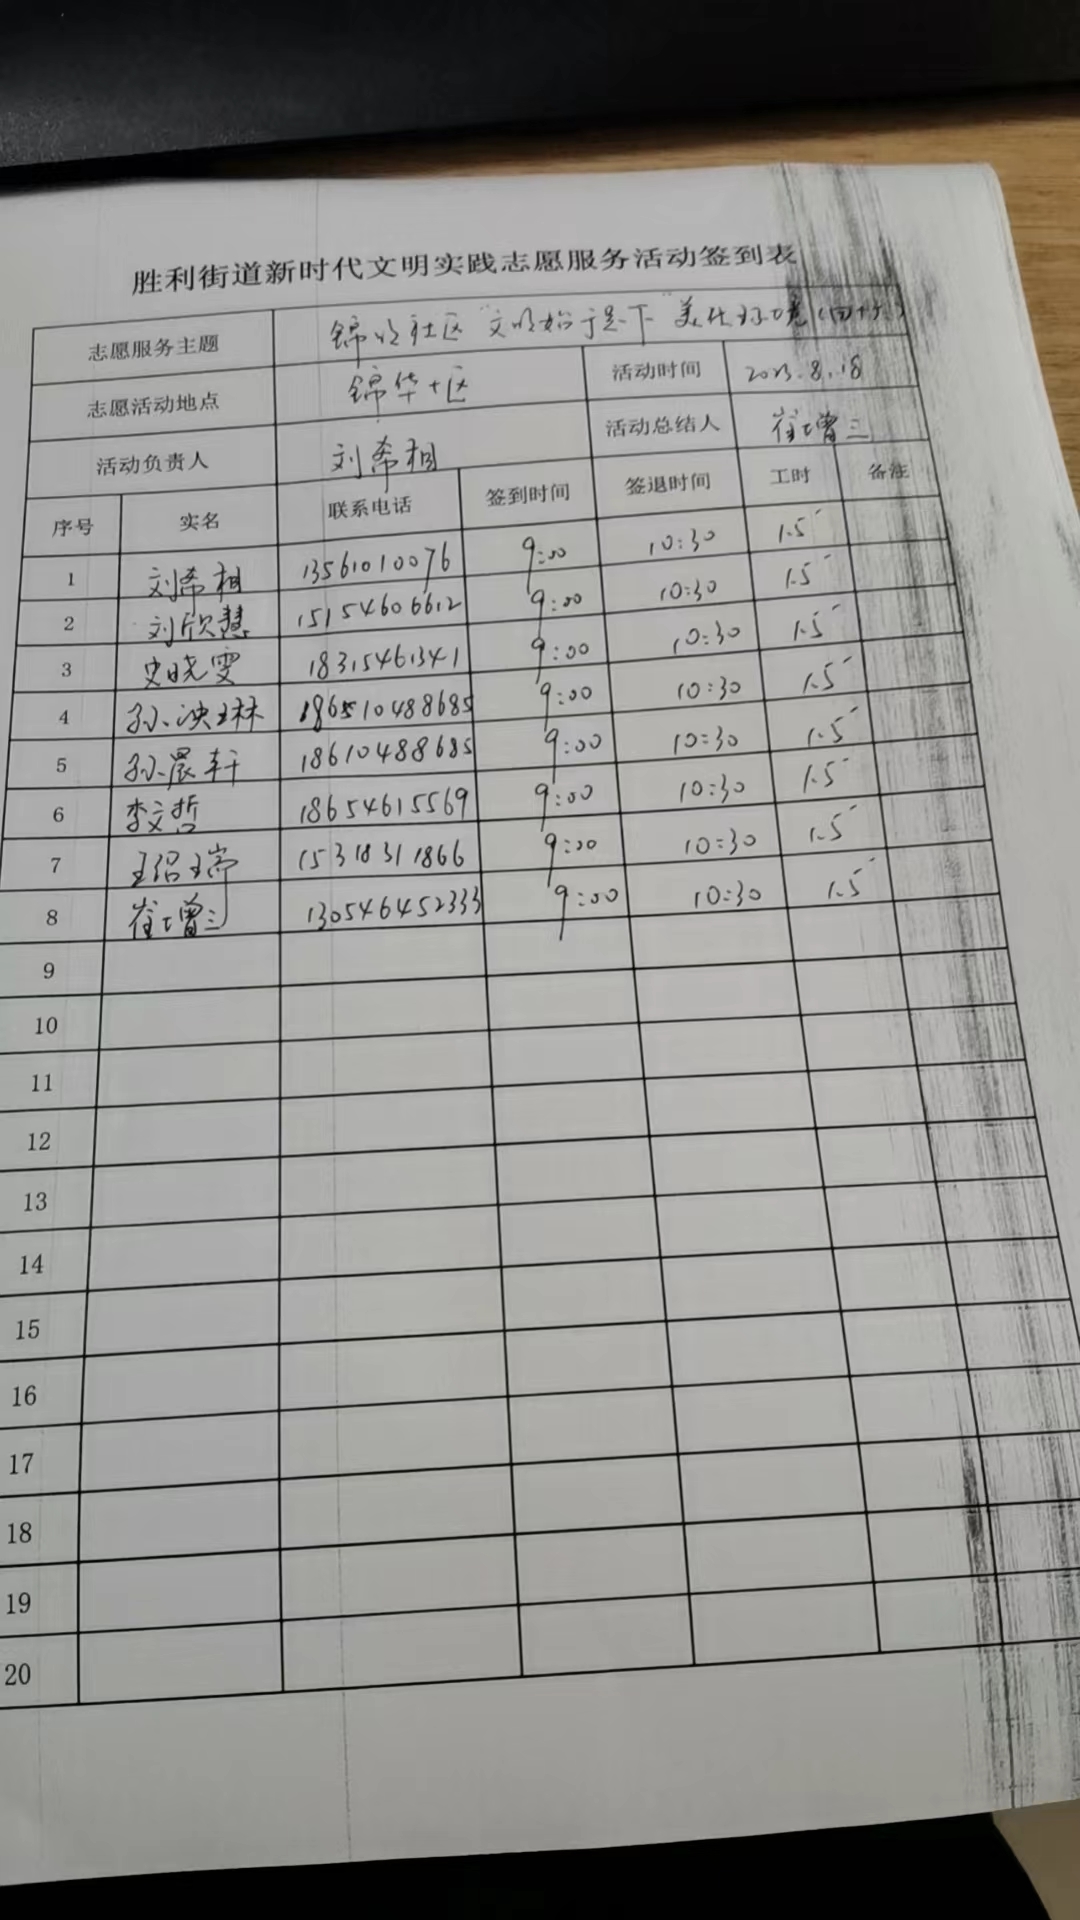 胜利街道新时代文明实践志愿服务活动签到表
志愿服务主题 锦华社区"文明始于足下"美化环境(四十六)
志愿活动地点 锦华十区 活动时间 2023.8.18
活动负责人 刘希相 活动总结人 崔增三
序号 实名 联系电话 签到时间 签退时间 工时 备注
1 刘希相 13561010076 9:00 10:30 1.5
2 刘欣慧 15154606612 9:00 10:30 1.5
3 史晓雯 18315461341 9:00 10:30 1.5
4 孙浹琳 186510488685 9:00 10:30 1.5
5 孙晨轩 18610488685 9:00 10:30 1.5
6 李文哲 18654615569 9:00 10:30 1.5
7 王绍瑞 15318311866 9:00 10:30 1.5
8 崔增三 130546452333 9:00 10:30 1.5
9
10
11
12
13
14
15
16
17
18
19
20